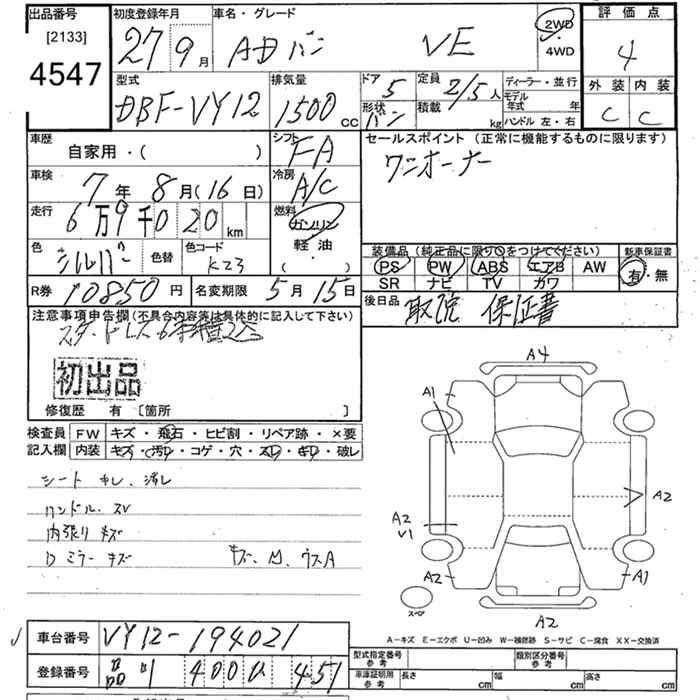 出品番号 初度登録年月 車名・グレード 評価点
[2133] 27 9月 ADバン VE 2WD 4
4547 4WD
外装 内装
型式 排気量 ドア 定員 ディーラー・並行
DBF-VY12 1500cc 5 2/5人 モデル年式 年 C C
形状 バン 積載 kg ハンドル 左・右
車歴 シフト セールスポイント (正常に機能するものに限ります)
自家用・( ) FA ワンオーナー
車検 冷房
7年 8月(16日) A/C
走行 燃料
6万9千020km ガソリン
軽油
( )
色 色替 色コード 装備品(純正品に限り○をつけてください) 新車保証書
シルバー K23 PS PW ABS エアB AW 有・無
SR ナビ TV カワ
R券 10850円 名変期限 5月15日 後日品
取説 保証書
注意事項申告欄(不具合内容等は具体的に記入して下さい)
初出品
修復歴 有 [箇所 ]
検査員 FW キズ・飛石・ヒビ割・リペア跡・×要
記入欄 内装 キズ・汚レ・コゲ・穴・スレ・キレ・破レ
シート キレ、汚レ
ハンドル スレ
内張り キズ
Dミラー キズ
A4
A1
A2
A2
V1
A2 A1
スペア
A2
A-キズ E-エクボ U-凹み W-補修跡 S-サビ C-腐食 XX-交換済
車台番号 VY12-194021
登録番号 400 451
型式指定番号 参考 類別区分番号 参考
車庫証明用 参考 長さ cm 幅 cm 高さ cm